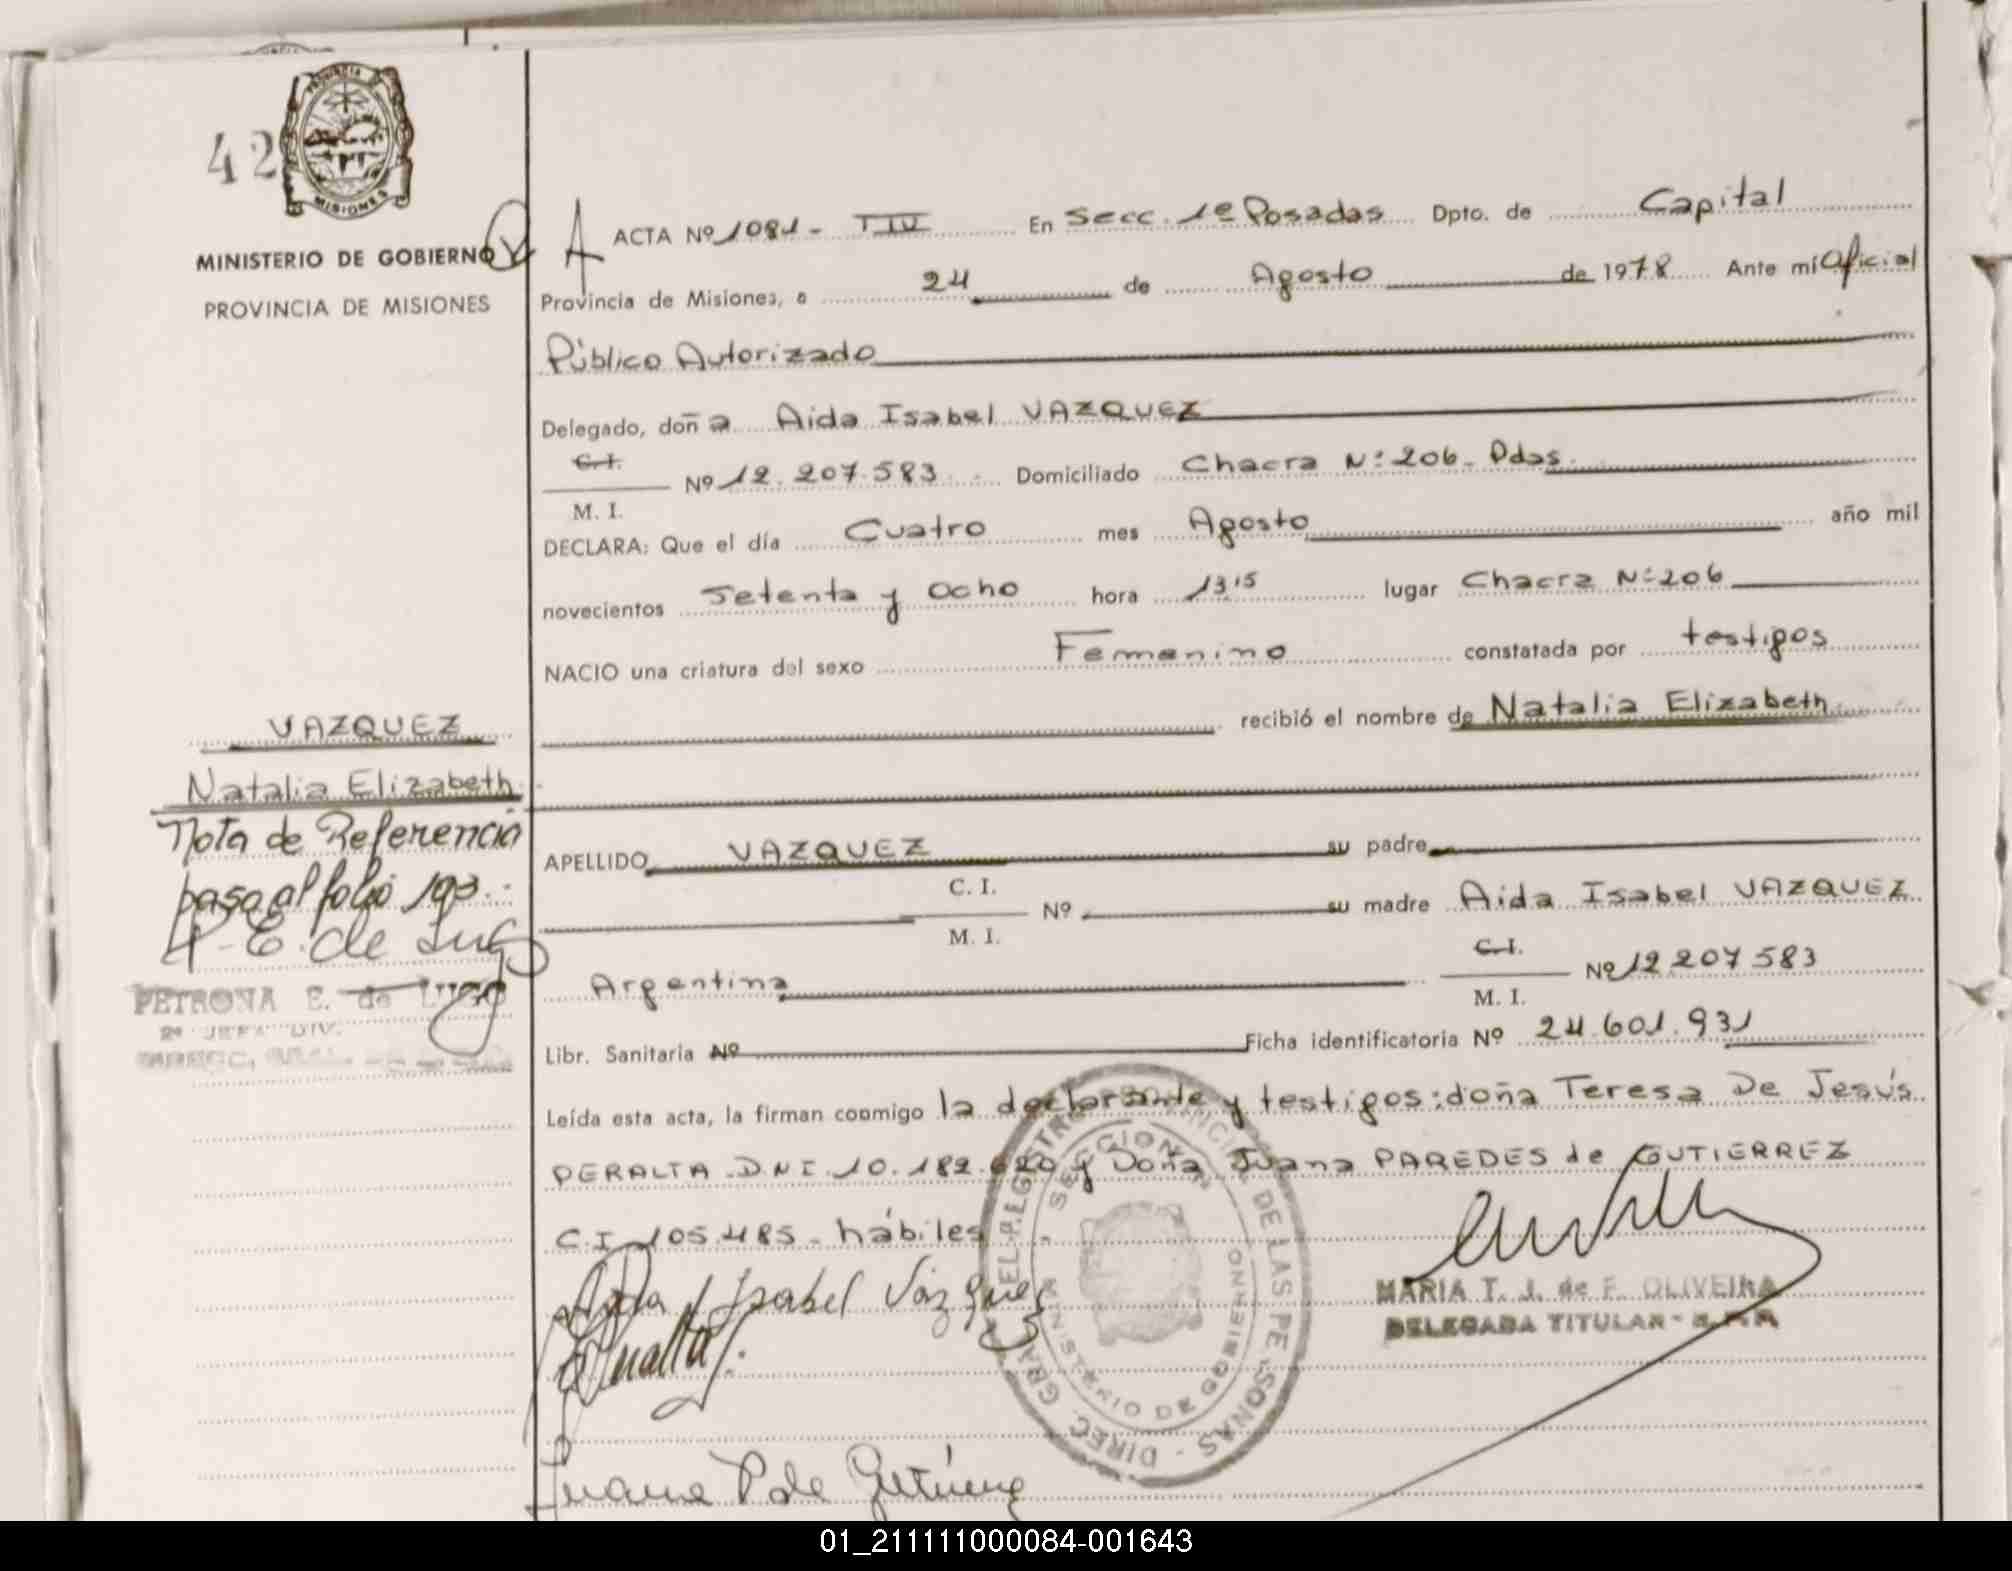 PROVINCIA DE
MISIONES
42
MINISTERIO DE GOBIERNO
PROVINCIA DE MISIONES
ACTA Nº 1081 - T IV En Secc. 1º Posadas Dpto. de Capital
Provincia de Misiones, a 24 de Agosto de 1978 Ante mi Oficial
Público Autorizado
Delegado, doña Aida Isabel VAZQUEZ
C.I.
M. I. Nº 12.207.583 Domiciliado Chacra Nº 206 - Pdas.
DECLARA: Que el día Cuatro mes Agosto año mil
novecientos Setenta y Ocho hora 13,15 lugar Chacra Nº 206
NACIO una criatura del sexo Femenino constatada por testigos
recibió el nombre de Natalia Elizabeth
VAZQUEZ
Natalia Elizabeth
Nota de Referencia
pasa al folio 193.
P. E. de Lugo
PETRONA E. de LUGO
2º JEFA DIV.
APELLIDO VAZQUEZ su padre
C. I.
M. I. Nº su madre Aida Isabel VAZQUEZ
Argentina C.I.
M. I. Nº 12.207.583
Libr. Sanitaria Nº Ficha identificatoria Nº 24.601.931
Leída esta acta, la firman conmigo la declarante y testigos: doña Teresa De Jesús
PERALTA D.N.I. 10.182.620 y Doña Juana PAREDES de GUTIERREZ
C.I. 105.485 - hábiles
Aida Isabel Vázquez
Peralta
Juana P de Gutierrez
DIREC. GRAL. DEL REGISTRO PROVINCIAL DE LAS PERSONAS
SECCION
MINISTERIO DE GOBIERNO
MARIA T. J. de F. OLIVEIRA
DELEGADA TITULAR
01_211111000084-001643